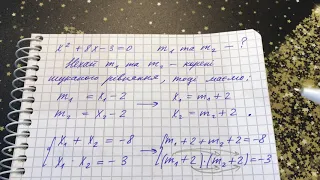 x² + 8x - 3 = 0 m₁ та m₂ - ?
Нехай m₁ та m₂ - корені
шуканого рівняння, тоді маємо:
m₁ = x₁ - 2 → x₁ = m₁ + 2
m₂ = x₂ - 2 x₂ = m₂ + 2.
{ x₁ + x₂ = -8 → { m₁ + 2 + m₂ + 2 = -8
x₁ · x₂ = -3 (m₁ + 2) · (m₂ + 2) = -3